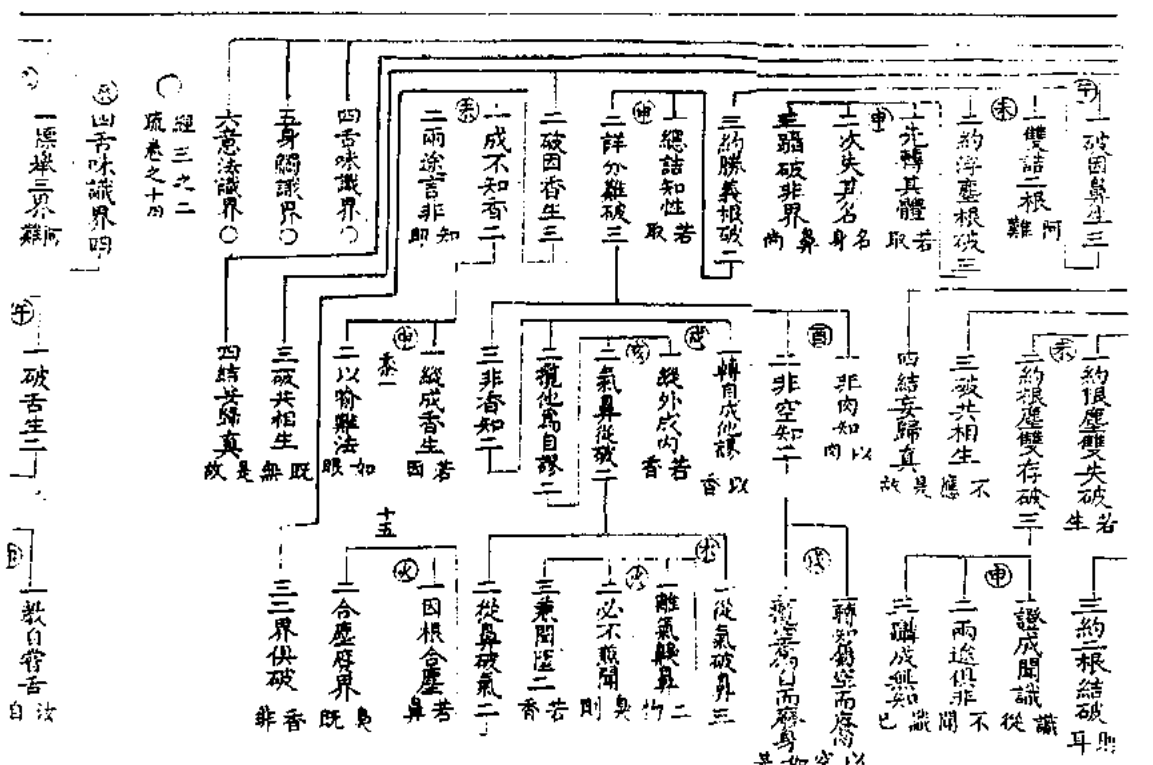 午
一破因鼻生三
未
二雙詰二根
阿難
二約浮塵根破三
申
一先轉其體
若取
二次失其名
名身鼻
三驅破非界
尚
三約勝義根破二
申
一總詰知性
若取
二詳分難破三
二破因香生三
未
一成不知香二
二兩途言非
知即
四舌味識界〇
五身觸識界〇
六意法識界〇
經三之二
疏卷之十四
四舌味識界四
一標舉三界
阿難
未
一約根塵雙失破
若生
二約根塵雙存破三
三破共相生
不應
四結妄歸真
是故
酉
一非肉知
以肉
二非空知二
戌
一轉自成他謬
以香
亥
一縱外成內
若香
二氣鼻從破二
二攬他為自謬二
三非香知二
申
一縱成香生
若因
二以物難法
如眼
三破共相生
既無
四結妄歸真
是故
午
一破舌生二
三約二根結破
則耳
申
一證成聞識
識從
二兩途俱非
不聞
三購成無知
識已
戌
轉知屬空而廢鼻
一從氣破鼻三
火
一離氣驗鼻
二物
二必不兼聞
臭則
三兼聞墮二
若香
二從鼻破氣二
十五
火
一因根合塵
若鼻
二合塵廢界
臭既
三二界俱破
香非
一教自嘗舌
汝自